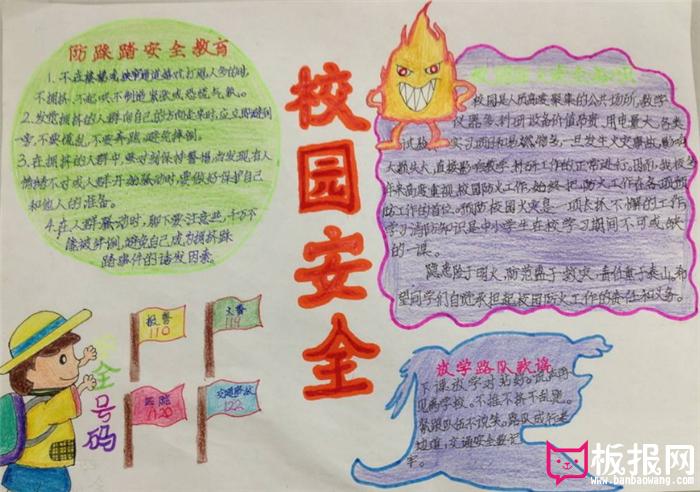 防踩踏安全教育
不拥挤,不起哄不制造紧张或恐慌气氛。
2.发觉拥挤的人群向自己的方向走来时,应立即避到一
旁,不要慌乱,不要奔跑,避免摔倒。
3.在拥挤的人群中,要时刻保持警惕,当发现有人
情绪不对或人群开始骚动时,要做好保护自己
和他人的准备。
4.在人群骚动时,脚下要注意些,千万不
能被绊倒,避免自己成为拥挤踩
踏事件的诱发因素。
校园安全
校园是人员高度聚集的公共场所,教学
仪器多,科研设备价值昂贵,用电量大,各类
年来高度重视校园防火工作,始终把防火工作在各项预
防工作的首位。预防校园火灾是一项长抓不懈的工作
学习消防知识是中小学生在校学习期间不可或缺
的一课。
隐患险于明火,防范胜于救灾,责任重于泰山,希
望同学们自觉承担起校园防火工作的责任和义务。
报警
110
火警
119
120
交通事故
122
安全号码
放学路队歌谣
下课放学对站好。
见离学校。不推不挤不乱跑。
紧跟队伍不说笑。路队成行走
边道,交通安全要记
牢。
板报网
www.banbaowang.com